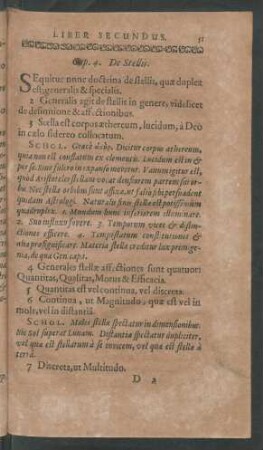 LIBER SECUNDUS. 51
Cap. 4. De Stellis.
SEquitur nunc doctrina de stellis, quæ duplex
est: generalis & specialis.
2 Generalis agit de stellis in genere, videlicet
de definitione & affectionibus.
3 Stella est corpus æthereum, lucidum, à Deo
in cælo sidereo collocatum.
SCHOL. Græcè Dicitur corpus æthereum,
quia non est constatum ex elementis. Lucidum est in &
per se. Sine fulcro in expanso movetur. Vanum igitur est,
quod Aristoteles stellam vocat densiorem partem sui or-
bis. Nec stella orbibus sunt affixæ, ut falsò sibi persuadent
quidam Astrologi. Naturalis finis stellæ est potissimùm
quadruplex. 1. Mundum hunc inferiorem illuminare.
2. Suo influxu fovere. 3. Temporum vices & distin-
ctiones efficere. 4. Tempestatum constitutiones &
præsignificare. Materia stellæ creditur lux primige-
nia, de qua Gen. cap. 1.
4 Generales stellæ affectiones sunt quatuor:
Quantitas, Qualitas, Motus & Efficacia.
5 Quantitas est vel continua, vel discreta.
6 Continua, ut Magnitudo, quæ est vel in
mole, vel in distantiâ.
SCHOL. Moles stellæ spectatur in dimensionibus:
Sol superat Lunam. Distantia spectatur dupliciter,
vel quæ est stellarum à se invicem, vel quæ est stellæ à
terrâ.
7 Discreta, ut Multitudo.
D 2